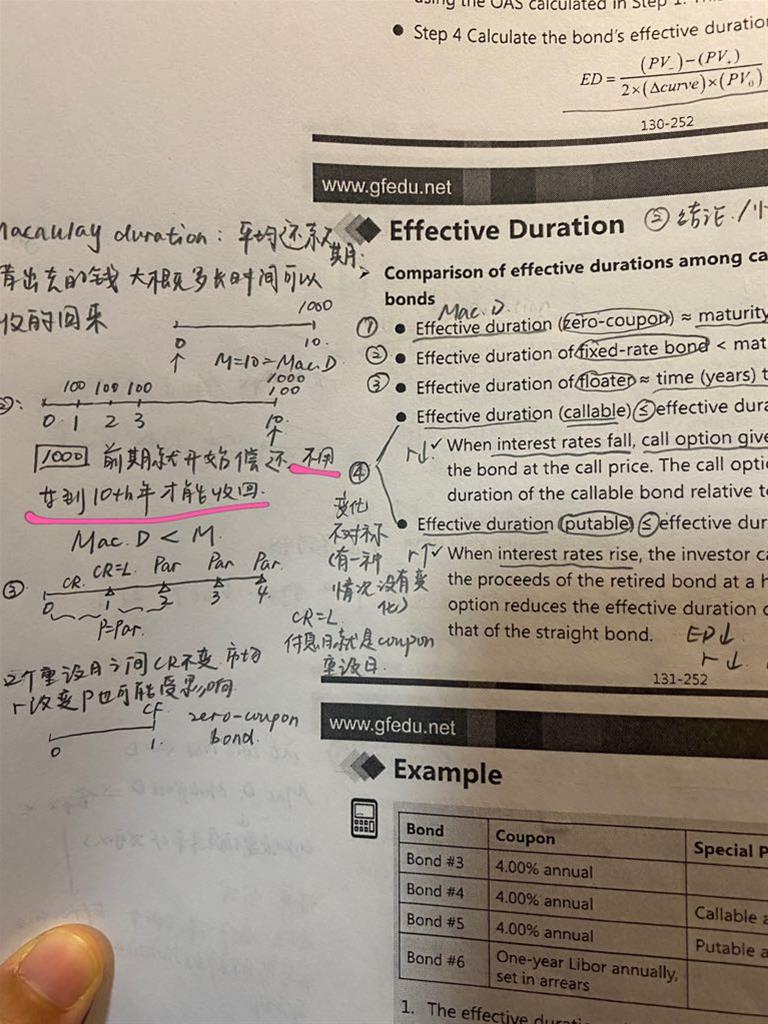 using the OAS calculated in Step 1.
● Step 4 Calculate the bond's effective duration
ED = (PV₋)−(PV₊) / 2×(Δcurve)×(PV₀)
130-252
www.gfedu.net
Effective Duration ② 结论
Comparison of effective durations among ca
bonds Mac. D.
① ● Effective duration (zero-coupon) ≈ maturity
② ● Effective duration of fixed-rate bond < mat
③ ● Effective duration of floater ≈ time (years) t
● Effective duration (callable) ≤ effective dura
r↓ ✓ When interest rates fall, call option give
the bond at the call price. The call opti
duration of the callable bond relative to
④
● Effective duration (putable) ≤ effective dur
r↑ ✓ When interest rates rise, the investor ca
the proceeds of the retired bond at a h
option reduces the effective duration o
that of the straight bond. ED↓
r↓
131-252
Macaulay duration: 平均还款期:
借出去的钱 大概多长时间可以
收的回来
1000
0 10.
↑ M=10=Mac.D
100 100 100 1000
100
0 1 2 3 10.
↑
1000 前期就开始偿还,不用
等到10th年才能收回.
Mac. D < M.
③ CR. CR=L. Par Par Par.
0 1 2 3 4.
P=Par.
2个重设日之间CR不变,市场
r改变P也可能受影响
CF
0 1.
zero-coupon
bond.
变化
不对称
(有一种
情况没有变
化)
CR=L
付息日就是coupon
重设日.
www.gfedu.net
Example
Bond Coupon Special P
Bond #3 4.00% annual
Bond #4 4.00% annual Callable a
Bond #5 4.00% annual Putable a
Bond #6 One-year Libor annually,
set in arrears
1. The effective